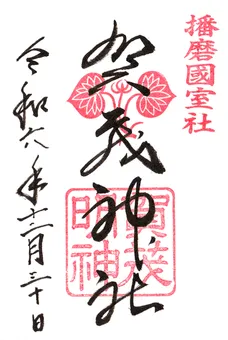 播磨國室社
賀茂神社
賀茂
明神
令和六年十二月三十日